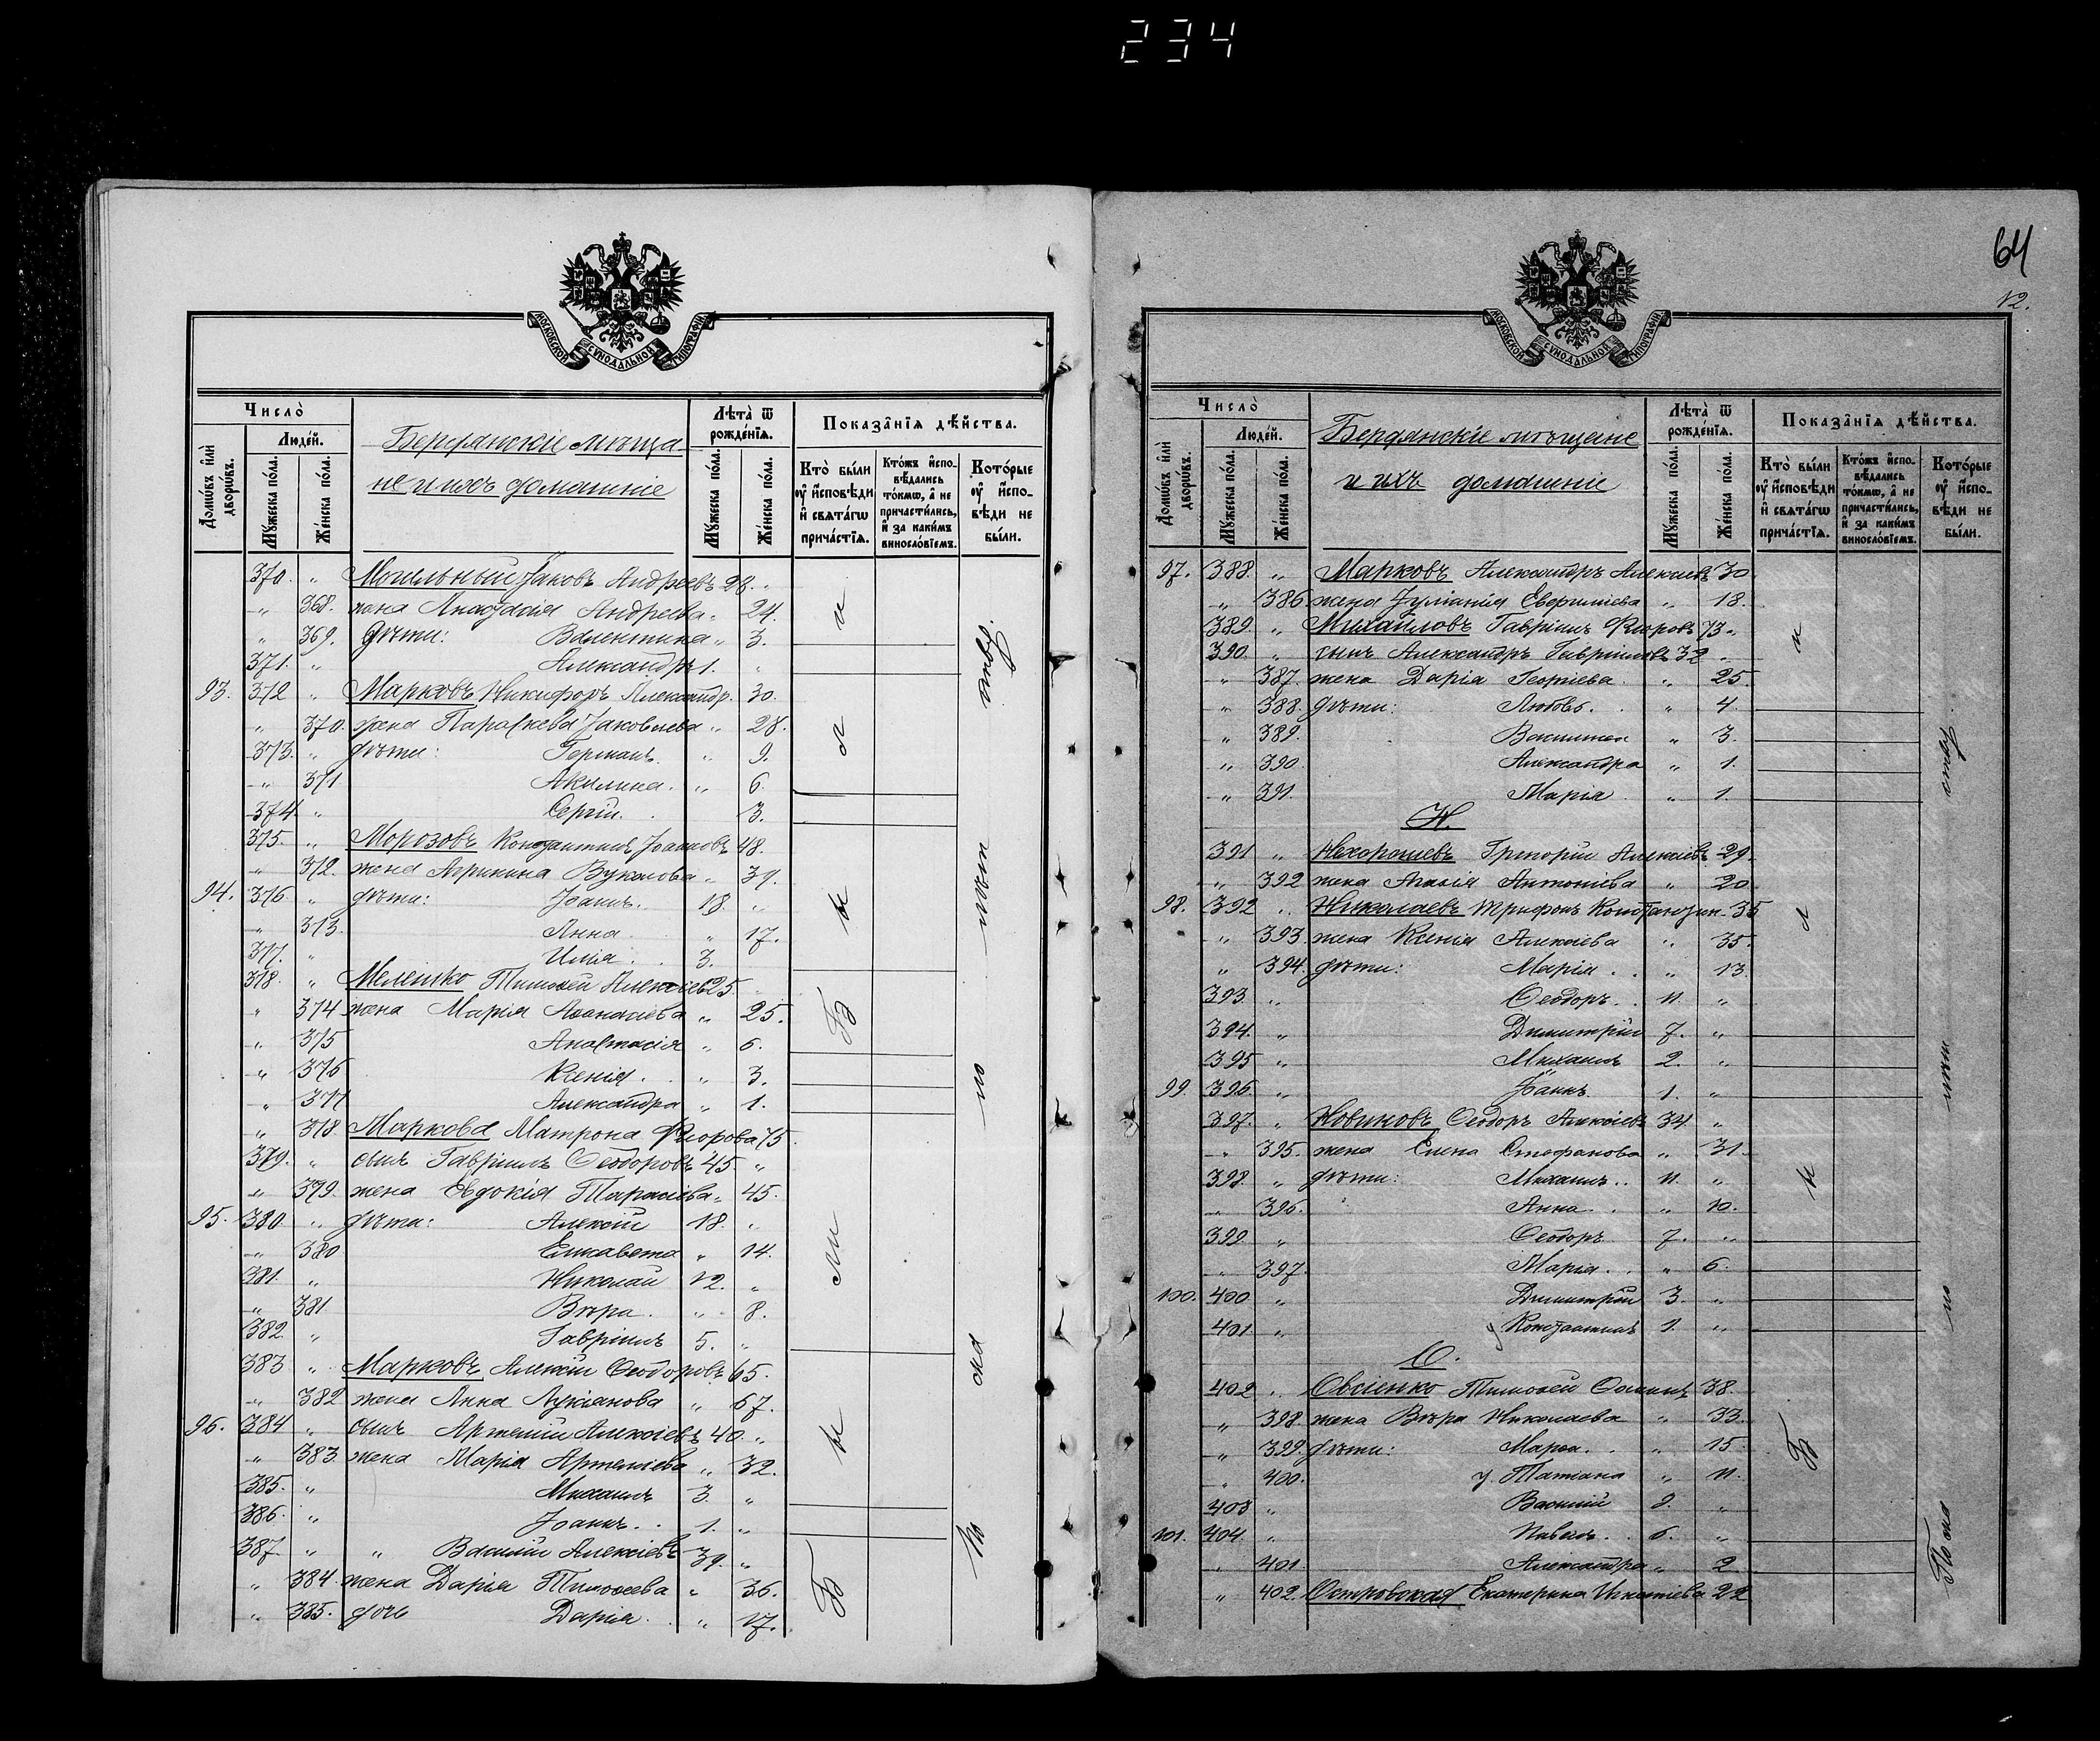 234
МОСКОВСКОЙ СѴНОДАЛЬНОЙ ТИПОГРАФІИ
Число̀
Людей.
Домѡвъ и҆лѝ дворѡвъ.
Мꙋжеска по́ла.
Же́нска по́ла.
Бердянскіе мѣща-
не и ихъ домашніе
Лѣта̀ ѿ рожде́нїѧ.
Мꙋжеска по́ла.
Же́нска по́ла.
Показа̂нїѧ дѣ́йства.
Кто̀ бы́ли ᲂу҆ и҆сповѣди и҆ свѧта́гѡ прича́стїѧ.
Кто́жъ и҆спо-вѣдались то́кмѡ, а҆ не причасти́лись, и҆ за каки́мъ винословіемъ.
Кото́рые ᲂу҆ и҆спо-вѣди не бы́ли.
370. „ Могильный Іаковъ Андреевъ 28. „
„ 368. жена Анастасія Андреева „ 24.
„ 369. дѣти: Валентина „ 3.
371. „ Александръ 1. „
93. 372 „ Марковъ Никифоръ Александр. 30.
„ 370. жена Параскева Іаковлева „ 28.
373. „ дѣти: Германъ. „ 9.
„ 371 Акилина. „ 6.
374 „ Сергій. 3.
375. „ Морозовъ Константинъ Іоанновъ 48.
„ 372. жена Агрипина Вуколова „ 39.
94. 376 „ дѣти: Іоаннъ. 18. „
„ 373. Анна „ 17.
377. „ Илія. 3.
378. „ Мелешко Тимоѳей Алексіевъ 25. „
„ 374 жена Марія Аѳанасіева „ 25.
„ 375 Анастасія „ 6.
„ 376 Ксенія. „ 3.
„ 377 Александра „ 1.
„ 378 Маркова Матрона Флорова 75.
379. „ сынъ Гавріилъ Ѳеодоровъ 45. „
„ 379. жена Евдокія Тарасіева „ 45.
95. 380 „ дѣти: Алексій 18. „
„ 380 Елисавета „ 14.
381. „ Николай 12. „
„ 381 Вѣра. „ 8.
382 „ Гавріилъ 5. „
383 „ Марковъ Алексій Ѳеодоровъ 65.
„ 382 жена Анна Лукіанова „ 67.
96. 384 „ сынъ Артемій Алексіевъ 40. „
„ 383. жена Марія Артеміева „ 32.
385. „ Михаилъ 3. „
386. „ Іоаннъ. 1. „
387. „ „ Василій Алексіевъ 39. „
„ 384 жена Дарія Тимоѳеева „ 36.
„ 385. дочь Дарія. „ 17.
64
12.
МОСКОВСКОЙ СѴНОДАЛЬНОЙ ТИПОГРАФІИ
Число̀
Людей.
Домѡвъ и҆лѝ дворѡвъ.
Мꙋжеска по́ла.
Же́нска по́ла.
Бердянскіе мѣщане
и ихъ домашніе
Лѣта̀ ѿ рожде́нїѧ.
Мꙋжеска по́ла.
Же́нска по́ла.
Показа̂нїѧ дѣ́йства.
Кто̀ бы́ли ᲂу҆ и҆сповѣди и҆ свѧта́гѡ прича́стїѧ.
Кто́жъ и҆спо-вѣдались то́кмѡ, а҆ не причасти́лись, и҆ за каки́мъ винословіемъ.
Кото́рые ᲂу҆ и҆спо-вѣди не бы́ли.
97. 388. „ Марковъ Александръ Алексіевъ 30.
„ 386 жена Іуліанія „ 18.
389. „ Михайловъ Гавріилъ Флоровъ 73 „
390. „ сынъ Александръ Гавріиловъ 32 „
„ 387. жена Дарія Георгіева „ 25.
„ 388. дѣти: Любовь. „ 4.
„ 389. „ 3.
„ 390. Александра „ 1.
„ 391. Марія „ 1.
Н.
391 „ Нехорошевъ Григорій Алексіевъ 29.
„ 392 жена Антоніева „ 20
98. 392 „ Николаевъ Трифонъ Константин. 35
„ 393. жена Ксенія Алексіева „ 35.
„ 394. дѣти: Марія. „ 13.
393. „ Ѳеодоръ. 11. „
394. „ Димитрій 7. „
395 „ Михаилъ 2. „
99. 396. „ Іоаннъ 1. „
397. „ Новиковъ Ѳеодоръ Алексіевъ 34 „
„ 395. жена Елена Стефанова „ 31.
398. „ дѣти: Михаилъ. 11. „
„ 396. Анна. „ 10.
399 „ Ѳеодоръ 7. „
„ 397. Марія. „ 6.
100. 400 „ Димитрій 3. „
401. „ Константинъ 1. „
О.
402 „ Овсіенко Тимоѳей 38.
„ 398. жена Вѣра Николаева „ 33.
„ 399. дѣти: „ 15.
„ 400. у. Татіана „ 11.
403 „ Василій 9. „
101. 404. „ Павелъ. 6. „
„ 401. Александра „ 2
„ 402. Островская Екатерина Игнатіева 22